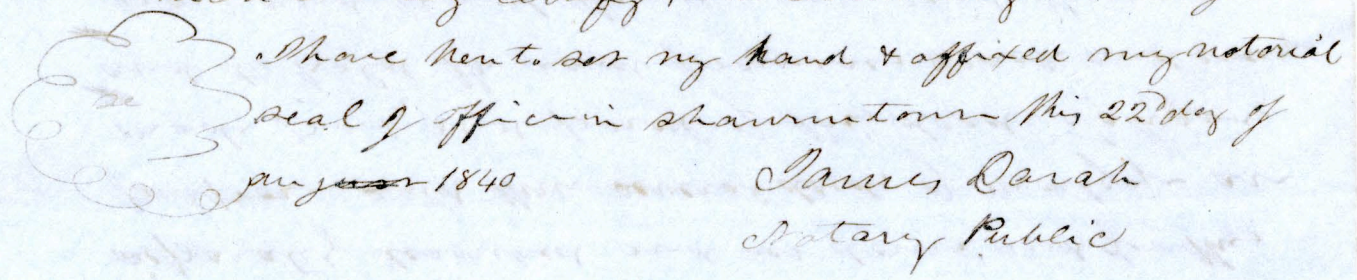 I have hereto set my hand & affixed my notorial
seal of office in shawneetown this 22d day of
august 1840
James Darah
Notary Public